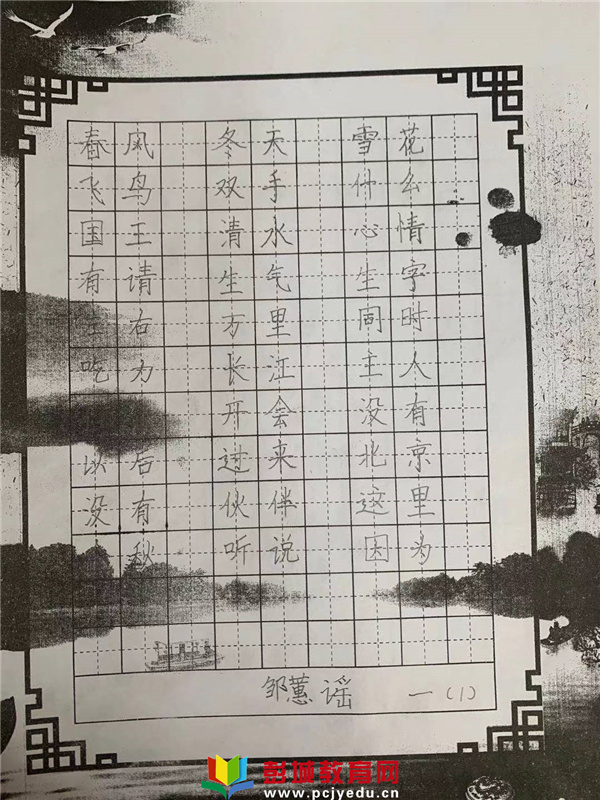 春风 冬天 雪花
飞鸟 双手 什么
国王 清水 心情
有请 生气 生字
左右 万里 同时
吃力 长江 主人
开会 没有
以后 过来 北京
没有 伙伴 这里
秋 听说 因为
邹蕙谣 一（1）
彭城教育网
www.pcjyedu.cn